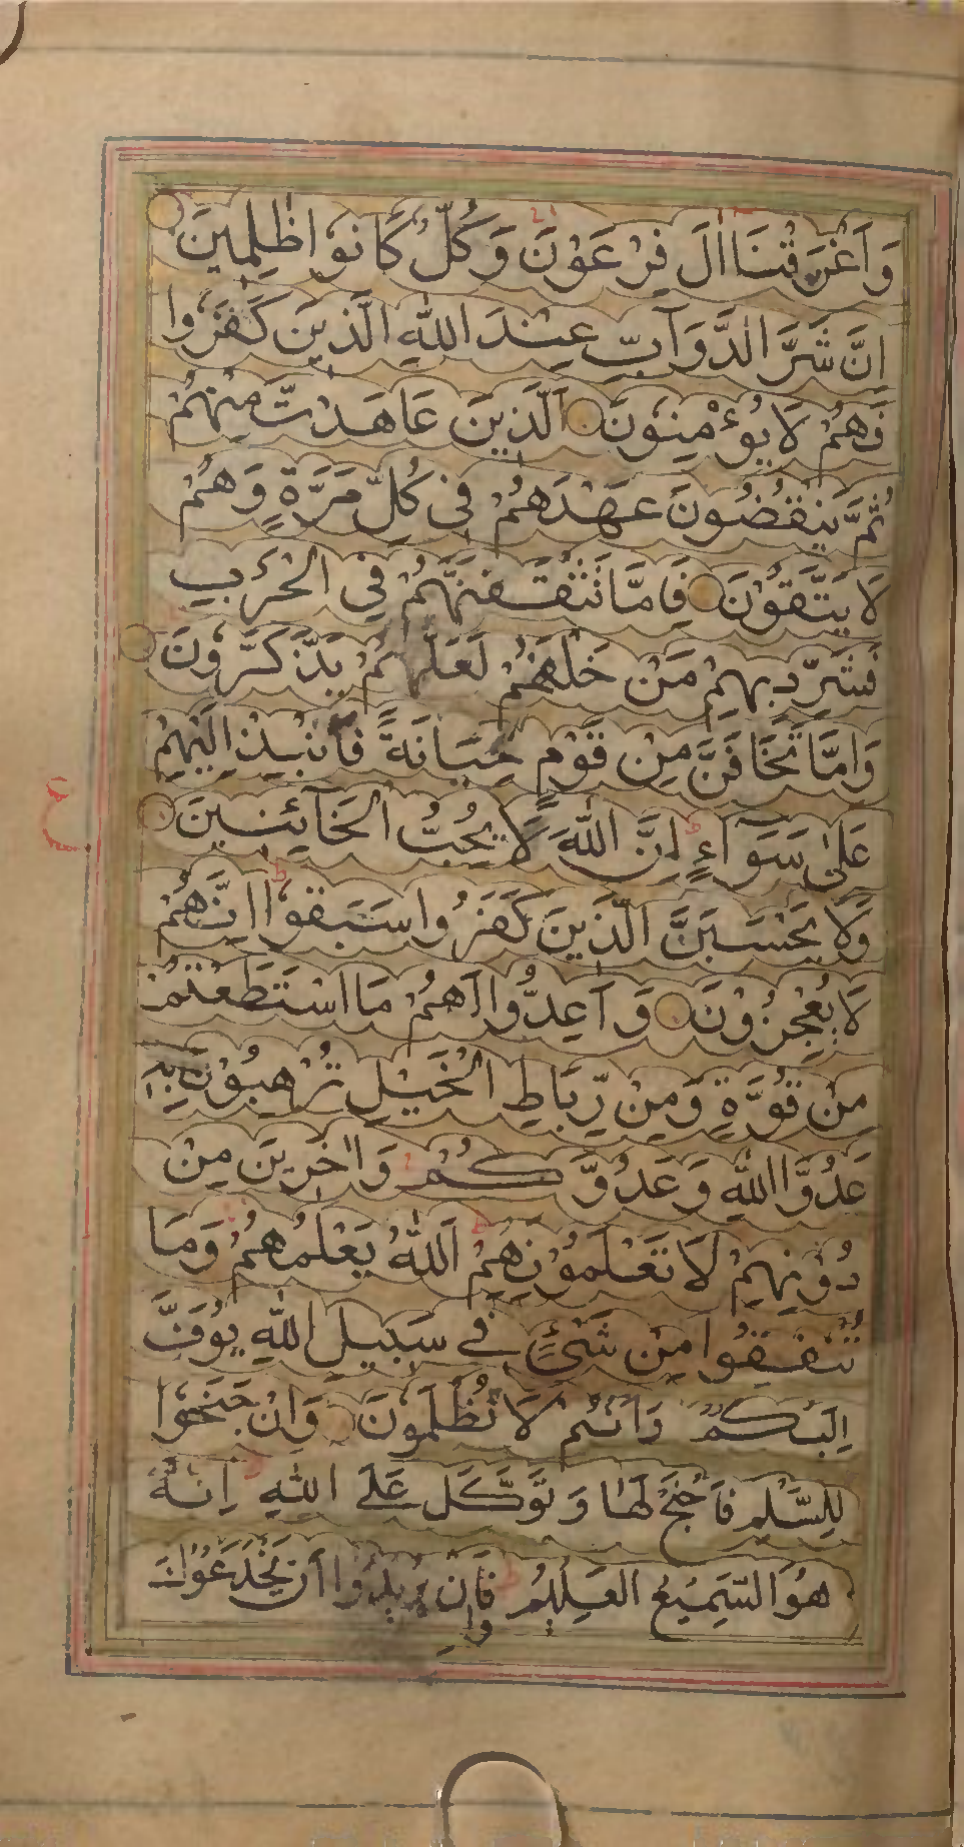 وَاَغْرَقْنَا اٰلَ فِرْعَوْنَ وَكُلٌّ كَانُوا ظٰلِمِينَ
اِنَّ شَرَّ الدَّوَآبِّ عِنْدَ اللّٰهِ الَّذِينَ كَفَرُوا
فَهُمْ لَا يُوءْمِنُونَ اَلَّذِينَ عَاهَدْتَّ مِنْهُمْ
ثُمَّ يَنْقُضُونَ عَهْدَهُمْ فِى كُلِّ مَرَّةٍ وَهُمْ
لَا يَتَّقُونَ فَاِمَّا تَثْقَفَنَّهُمْ فِي الْحَرْبِ
فَشَرِّدْ بِهِمْ مَنْ خَلْفَهُمْ لَعَلَّهُمْ يَذَّكَّرُونَ
وَاِمَّا تَخَافَنَّ مِنْ قَوْمٍ خِيَانَةً فَانْبِذْ اِلَيْهِمْ
عَلٰى سَوَآءٍ اِنَّ اللّٰهَ لَا يُحِبُّ الْخَآئِنِينَ
وَلَا يَحْسَبَنَّ الَّذِينَ كَفَرُوا سَبَقُوا اِنَّهُمْ
لَا يُعْجِزُونَ وَاَعِدُّوا لَهُمْ مَا اسْتَطَعْتُمْ
مِنْ قُوَّةٍ وَمِنْ رِّبَاطِ الْخَيْلِ تُرْهِبُونَ بِهٖ
عَدُوَّا اللّٰهِ وَعَدُوَّكُمْ وَاٰخَرِينَ مِنْ
دُوْنِهِمْ لَا تَعْلَمُوْنَهُمْ اَللّٰهُ يَعْلَمُهُمْ وَمَا
تُنْفِقُوا مِنْ شَىْءٍ فِے سَبِيلِ اللّٰهِ يُوَفَّ
اِلَيْكُمْ وَاَنْتُمْ لَا تُظْلَمُونَ وَاِنْ جَنَحُوا
لِلسَّلْمِ فَاجْنَحْ لَهَا وَتَوَكَّلْ عَلَے اللّٰهِ اِنَّهُ
هُوَ السَّمِيعُ الْعَلِيمُ وَاِنْ يُرِيدُوا اَنْ يَخْدَعُوْكَ